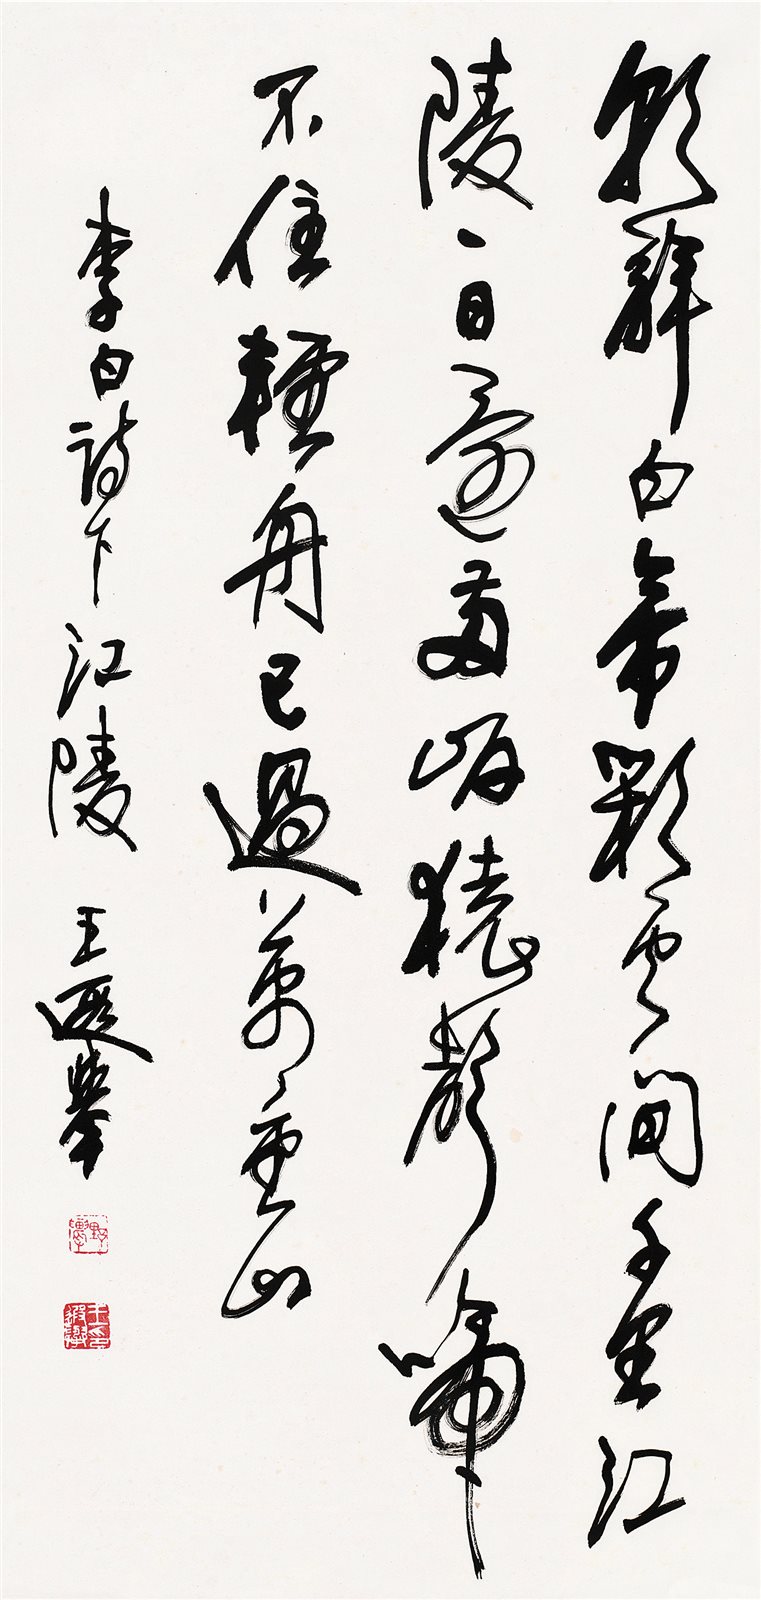 朝辭白帝彩雲間千里江
陵一日還兩岸猿聲啼
不住輕舟已過萬重山
李白詩下江陵 王遐舉
王印遐舉